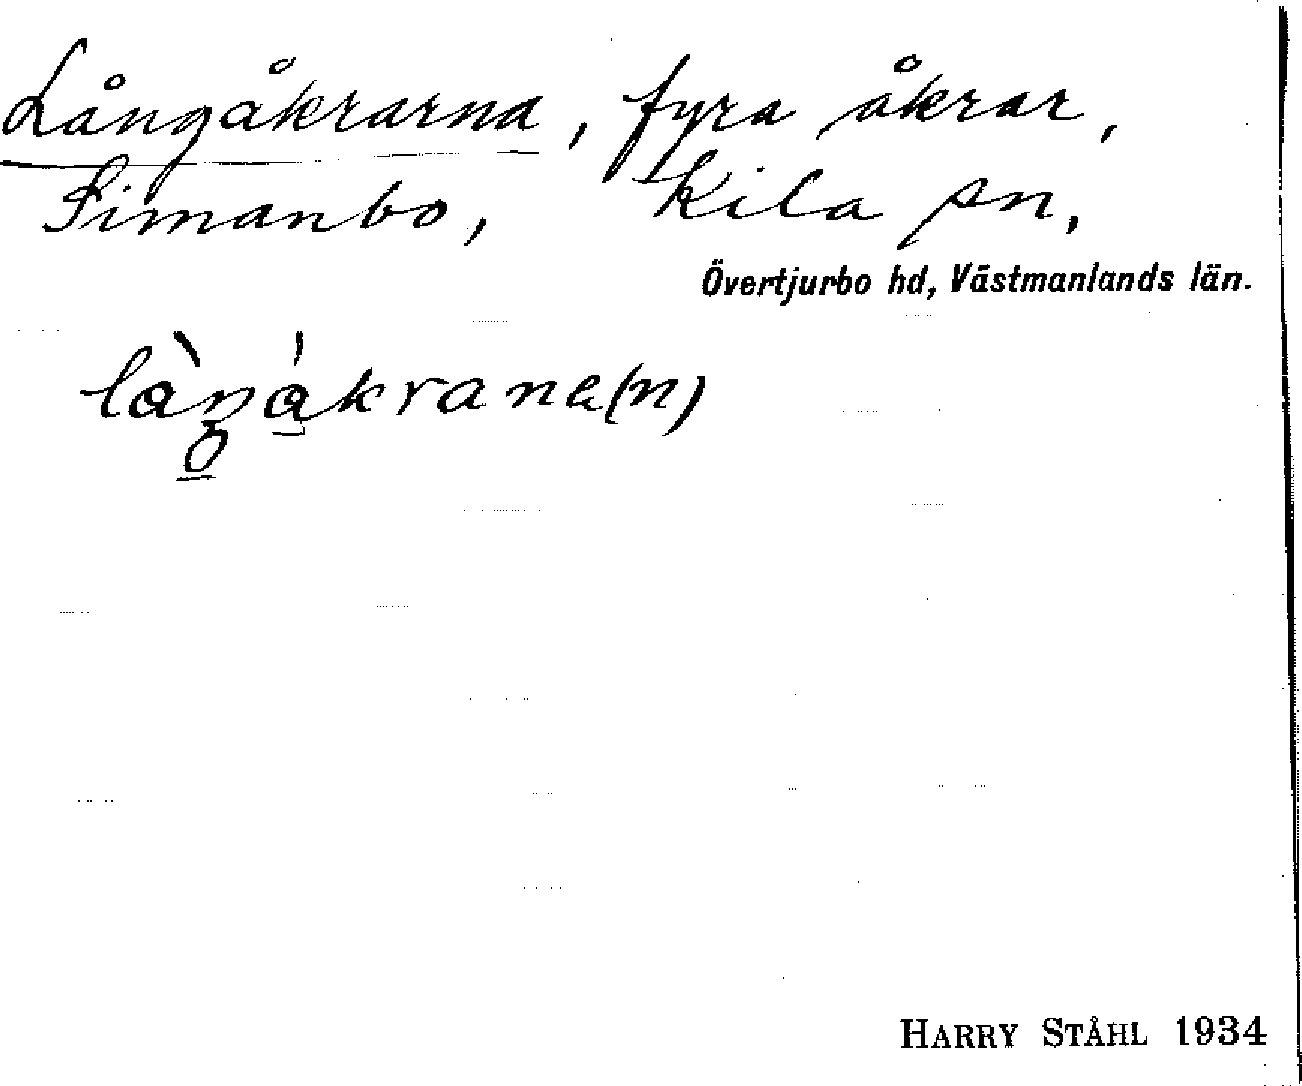 Långåkrarna, fyra åkrar,
Simanbo, Kila sn,
Övertjurbo hd, Västmanlands län.
HARRY STÅHL 1934